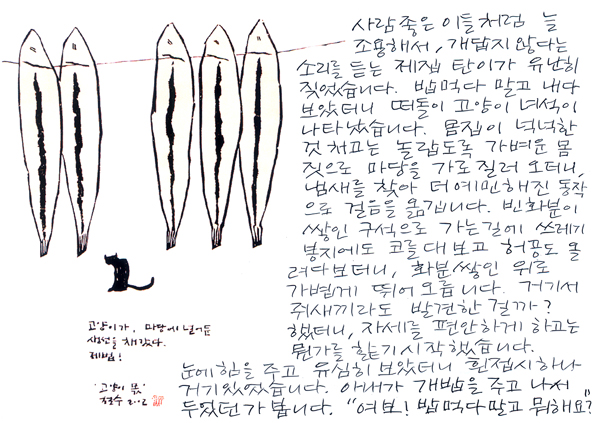 사람좋은 이들처럼 늘
조용해서, 개답지 않다는
소리를 듣는 제집 탄이가 유난히
짖었습니다. 밥먹다 말고 내다
보았더니 떠돌이 고양이 녀석이
나타났습니다. 몸집이 넉넉한
것 치고는 놀랍도록 가벼운 몸
짓으로 마당을 가로질러 오더니,
냄새를 찾아 더 예민해진 동작
으로 걸음을 옮깁니다. 빈화분이
쌓인 구석으로 가는길에 쓰레기
봉지에도 코를 대보고 허공도 올
려다보더니, 화분쌓인 위로
가볍게 뛰어 오릅니다. 거기서
쥐새끼라도 발견한 걸까?
했더니, 자세를 편안하게 하고는
뭔가를 핥기 시작했습니다.
눈에 힘을 주고 유심히 보았더니 흰접시 하나
거기 있었습니다. 아내가 개밥을 주고 나서
두었던가 봅니다. "여보! 밥먹다말고 뭐해요?"
고양이가, 마당에 널어둔
생선을 채갔다.
제법!
'고양이 몫'
철수 2012